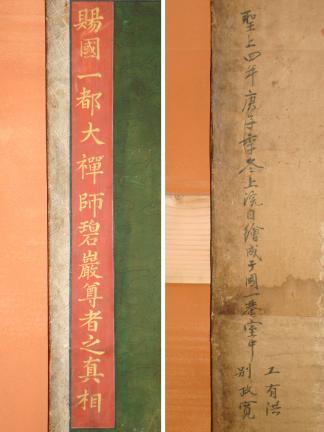 賜國一都大禪師碧巖尊者之真相
聖上四年庚子季冬上浣日繪成于國一菴室中
工有洪
別政寬